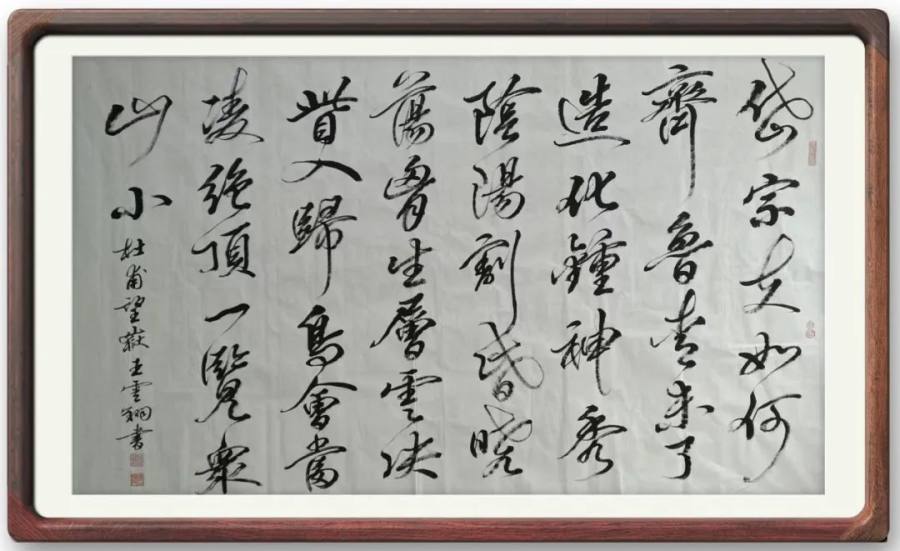 岱宗夫如何
齊魯青未了
造化鍾神秀
陰陽割昏曉
蕩胷生層雲決
眥入歸鳥會當
凌絕頂一覽衆
山小
杜甫望嶽王雲翔書